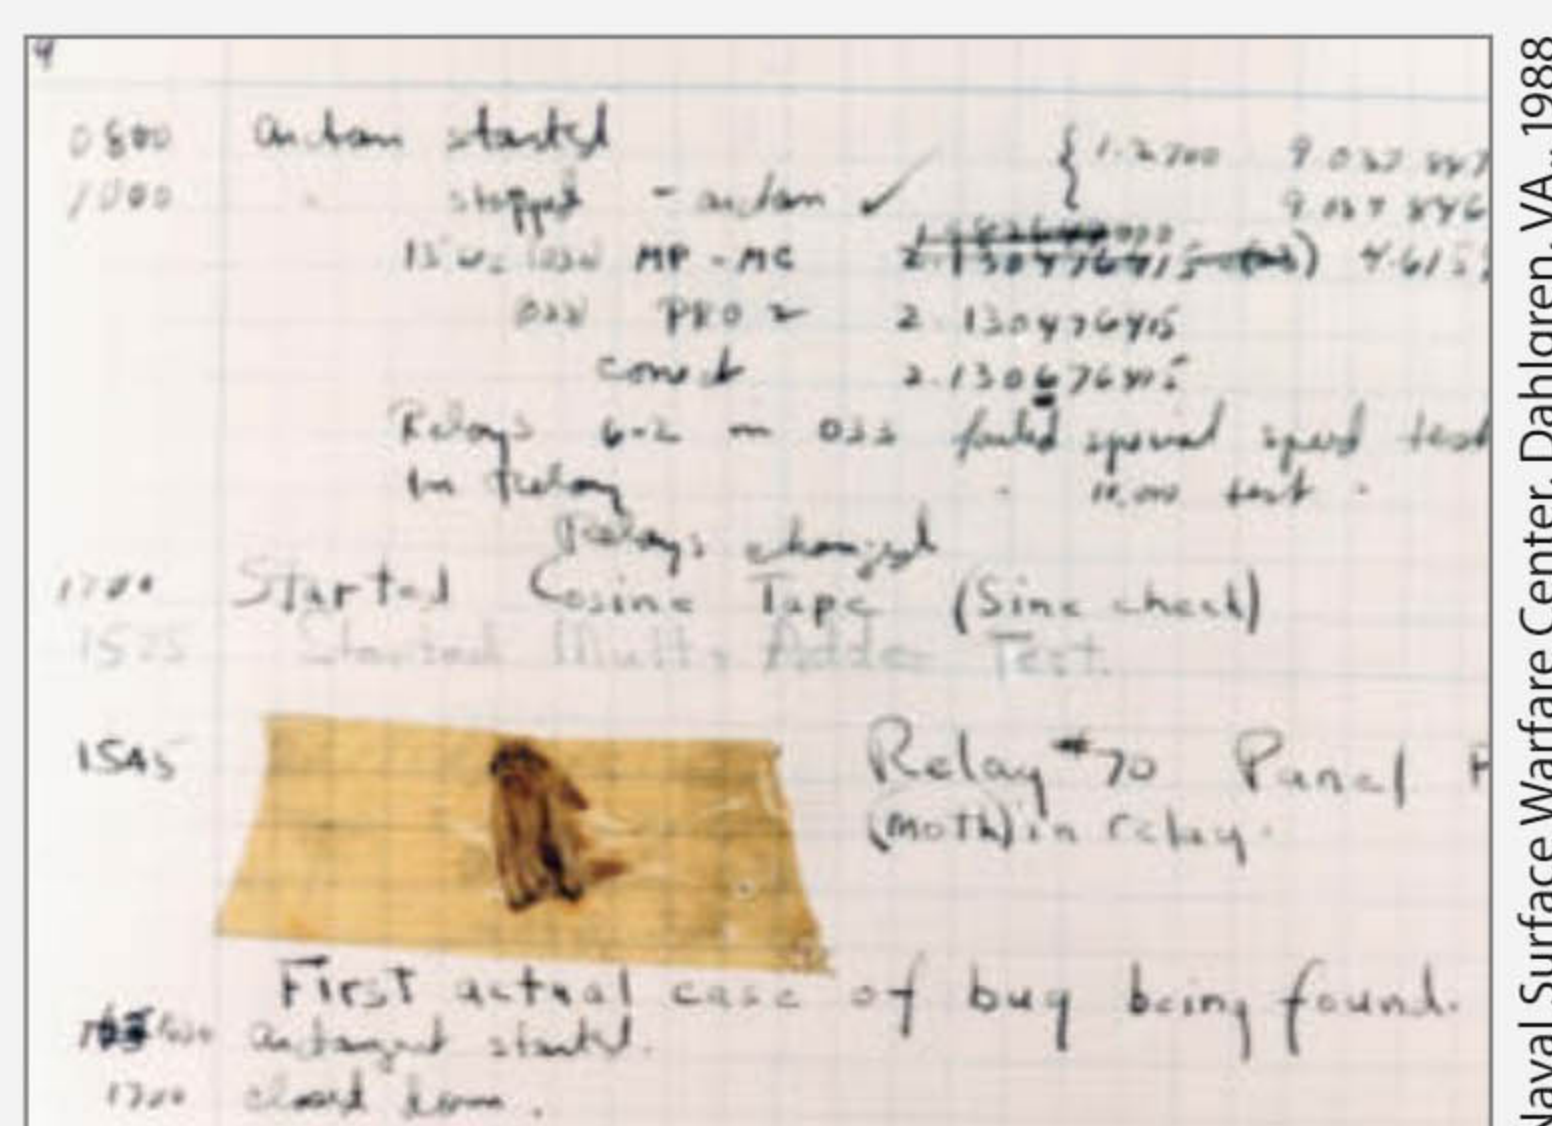 9
0800 antan started
1000 " stopped - antan ✓ { 1.2700 9.037 847
9.037 846
13"uc (032) MP - MC 4.615
033 PRO 2 2.130476415
correct 2.130676415
Relays 6-2 in 033 failed special speed test
in Relay " 10,000 test "
Relays changed
Started Cosine Tape (Sine check)
1525 Started Mult+ Adder Test.
1545 Relay #70 Panel F
(moth) in relay.
First actual case of bug being found.
1630 antangent started.
1700 closed down.
Naval Surface Warfare Center, Dahlgren, VA., 1988